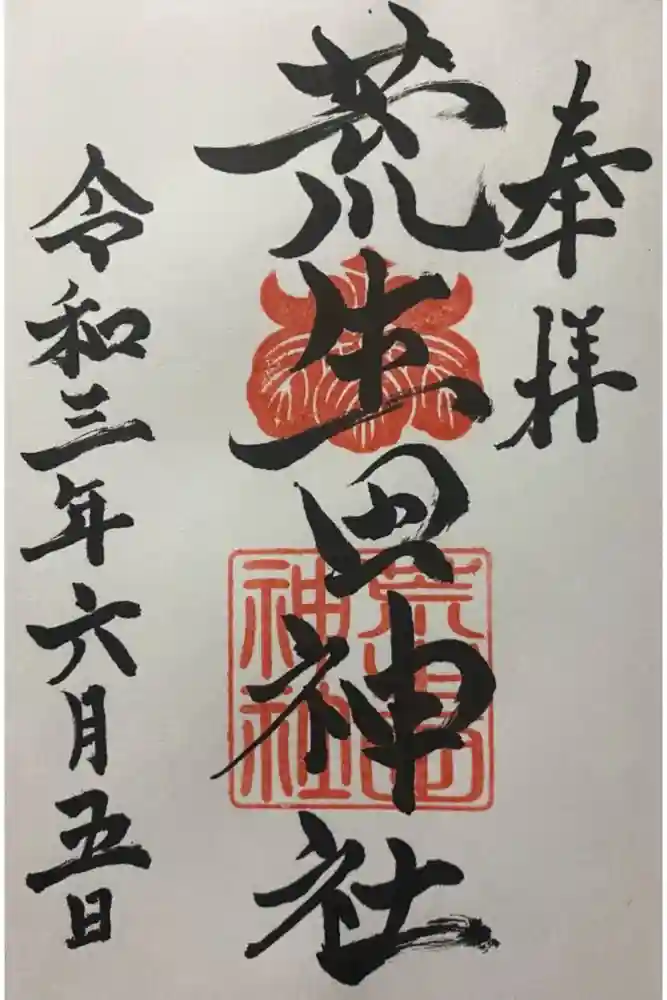 奉拝
荒生田神社
荒生田
神社
令和三年六月五日